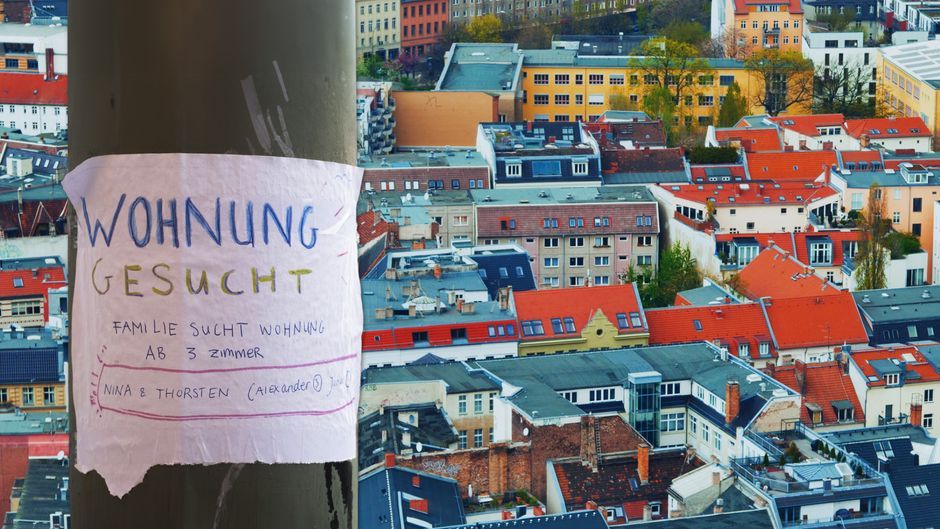 WOHNUNG
GESUCHT
FAMILIE SUCHT WOHNUNG
AB 3 ZIMMER
NINA & THORSTEN (ALEXANDER ⑤